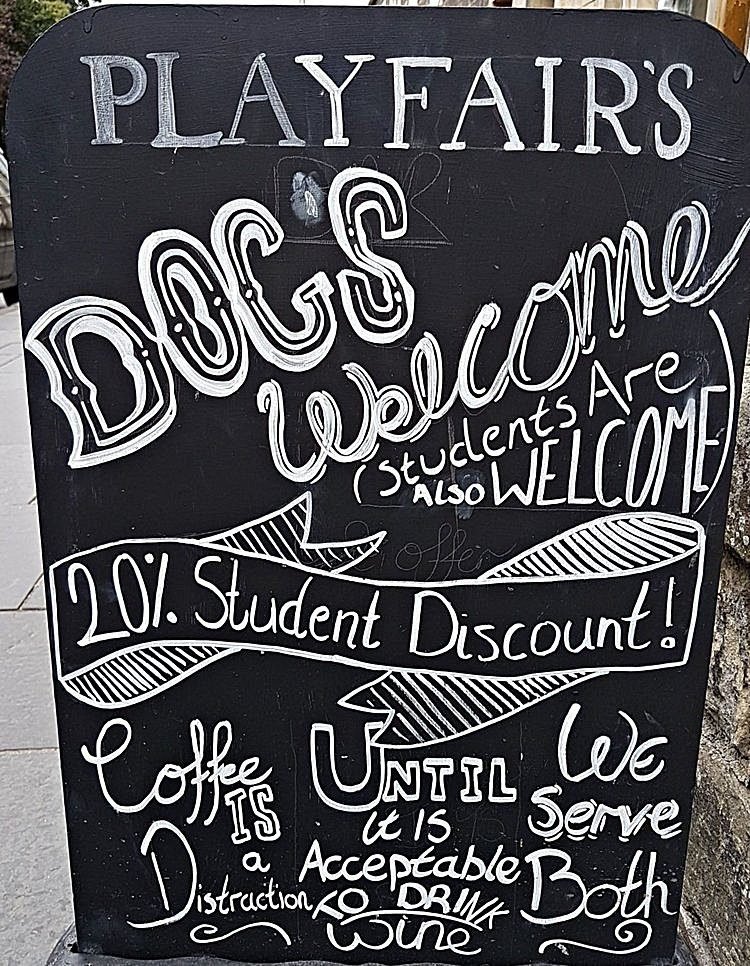 PLAYFAIR'S
DOG'S
Welcome
(Students Are
ALSO WELCOME)
20% Student Discount!
Coffee
IS
a
Distraction
UNTIL
it IS
Acceptable
to DRINK
Wine
We
Serve
Both